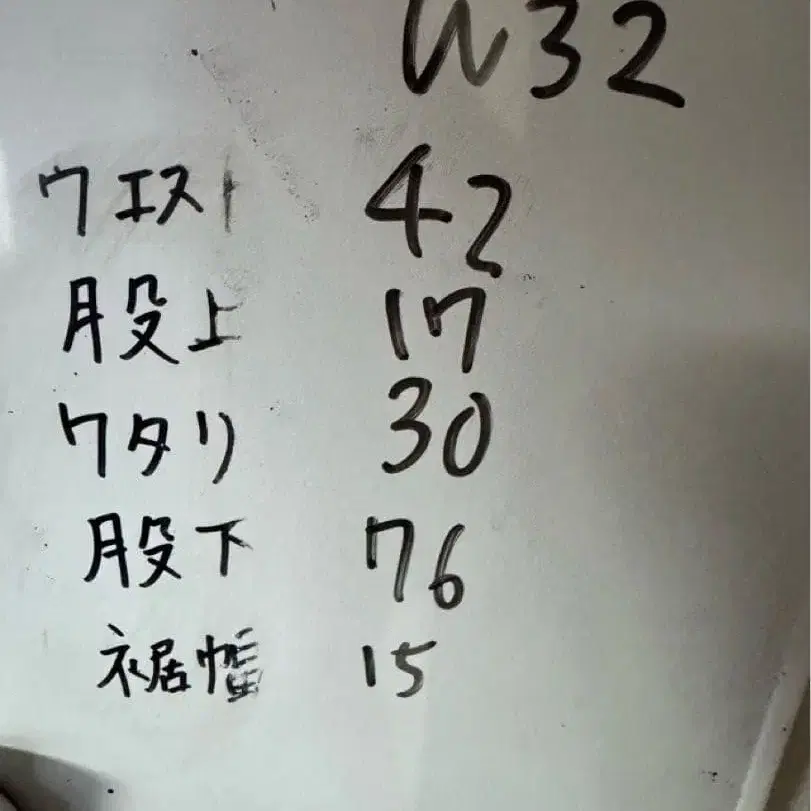 W32
ウエスト 42
股上 17
ワタリ 30
股下 76
裾幅 15